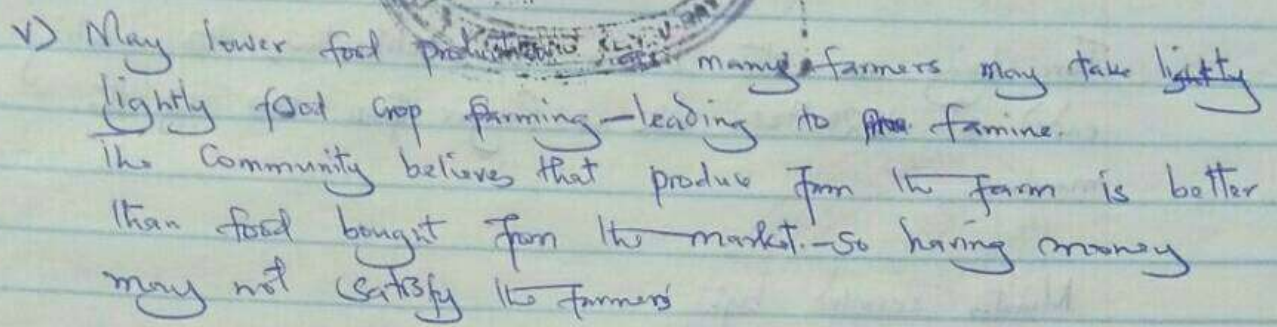 V) May lower food production many farmers may take lightly
lightly food crop farming - leading to famine.
The Community believes that produce from the farm is better
than food bought from the market. - So having money
may not satisfy the farmers